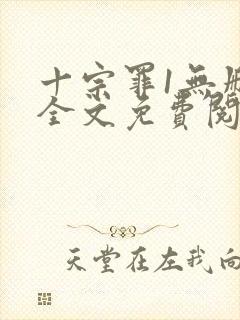 十宗罪1無
全文免費閱
天堂在左我向